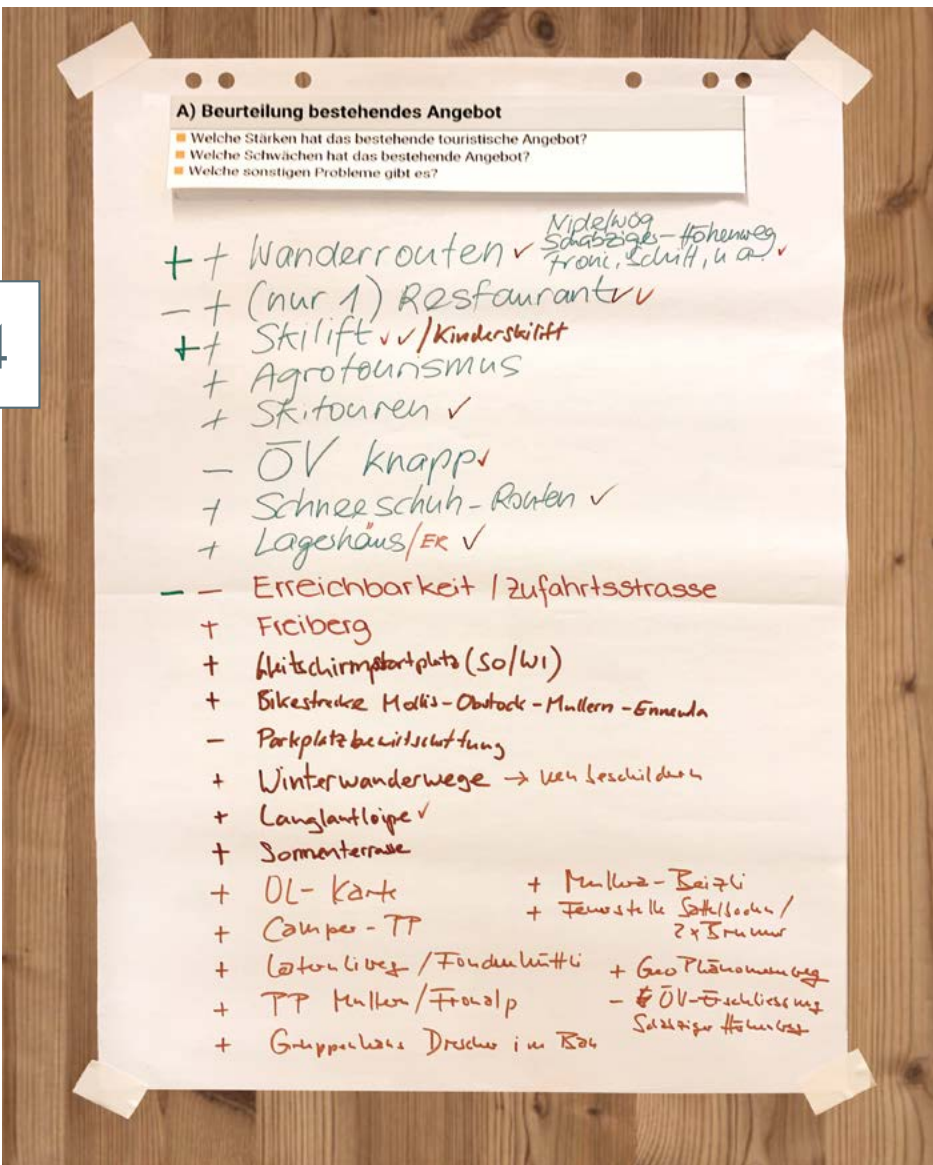 4
A) Beurteilung bestehendes Angebot
■ Welche Stärken hat das bestehende touristische Angebot?
■ Welche Schwächen hat das bestehende Angebot?
■ Welche sonstigen Probleme gibt es?
Nidelwög
Schabziger-Höhenweg
+ + Wanderrouten ✓ Froni, Schilt, u a. ✓
- + (nur 1) Restaurant ✓✓
+ + Skilift ✓✓/Kinderskilift
+ Agrotourismus
+ Skitouren ✓
- ÖV knapp ✓
+ Schneeschuh-Routen ✓
+ Lageshäus/ER ✓
- - Erreichbarkeit / Zufahrtsstrasse
+ Freiberg
+ Gleitschirmstartplatz (SO/WI)
+ Bikestrecke Mollis-Obstock-Mullern-Ennenda
- Parkplatzbewirtschaftung
+ Winterwanderwege → neu beschildern
+ Langlaufloipe ✓
+ Sonnenterrasse
+ OL-Karte
+ Camper-PP
+ /Fonduehüttli
+ PP Mullern/Fronalp
+ Gruppenhaus Drescher im Bau
+ Mullern-Beizli
+ Feuerstelle Sattelboden/
2x Brunnen
+ GeoPhänomenweg
- ÖV-Erschliessung
Schabziger Höhenweg